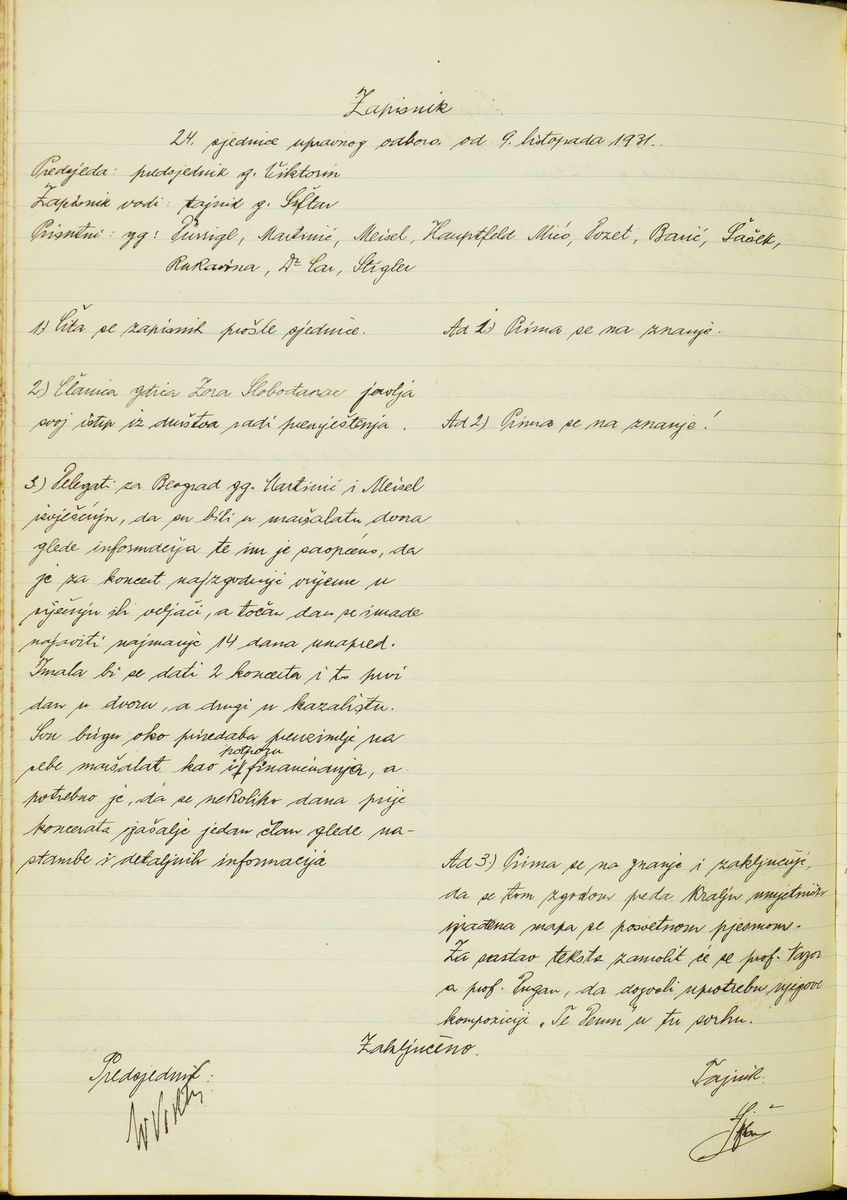 Zapisnik
24. sjednice upravnog odbora od 9. listopada 1931.
Predsjeda: predsjednik g. Viktorin
Zapisnik vodi: tajnik g. Šiftar
Prisutni: gg: Dürrigl, Martinić, Meisel, Hauptfeld Mićo, Pozet, Barić, Šaček,
Rukavina, Dr Car, Stigler
1) Čita se zapisnik prošle sjednice.
Ad 1) Prima se na znanje.
2) Članica gdjica Zora Slobodanac javlja
svoj istup iz društva radi premještenja.
Ad 2) Prima se na znanje!
3.) Delegati za Beograd gg. Martinić i Meisel
izvješćuju, da su bili u maršalatu dvora
glede informacija te im je saopćeno, da
je za koncert najzgodnije vrijeme u
siječnju ili veljači, a točan dan se imade
najaviti najmanje 14 dana unapred.
Imala bi se dati 2 koncerta i to prvi
dan u dvoru, a drugi u kazalištu.
Svu brigu oko priredaba preuzimlje na
sebe maršalat kao i potpuno financiranje, a
potrebno je, da se nekoliko dana prije
koncerata pošalje jedan član glede na-
stambe i detaljnih informacija
Ad 3.) Prima se na znanje i zaključuje,
da se tom zgodom preda Kralju umjetnički
izrađena mapa sa posvetnom pjesmom.
Za sastav teksta zamolit će se prof. Nazor
a prof. Dugan, da dozvoli upotrebu njegove
kompozicije „Te Deum" u tu svrhu.
Zaključeno.
Predsjednik:
Tajnik: